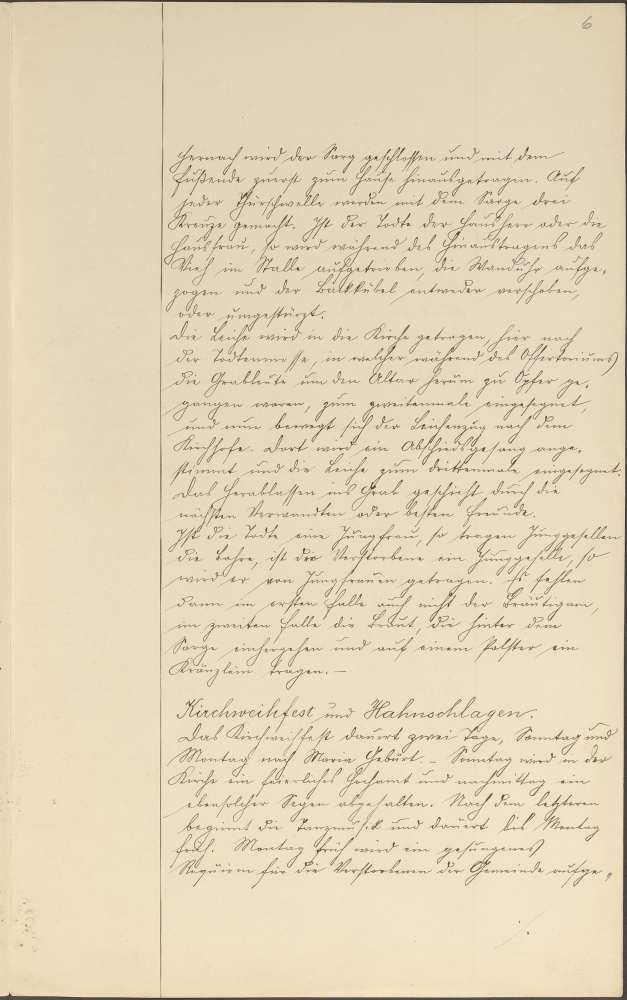 6
Hernach wird der Sarg geschlossen und mit dem
Fußende zuerst zum Hause hinausgetragen. Auf
jeder Thürschwelle werden mit dem Sarge drei
Kreuze gemacht. Ist der Todte der Hausherr oder die
Hausfrau, so wird während des Hinaustragens das
Vieh im Stalle aufgetrieben, die Wanduhr aufge-
zogen und der Backkübel entweder verschoben,
oder umgestürzt.
Die Leiche wird in die Kirche getragen, hier nach
der Todtenmesse, in welcher während des Offertoriums
die Grableute um den Altar herum zu Opfer ge-
gangen waren, zum zweitenmale eingesegnet,
und nun bewegt sich der Leichenzug nach dem
Kirchhofe. Dort wird ein Abschiedsgesang ange-
stimmt und die Leiche zum drittenmale eingesegnet.
Das Herablassen ins Grab geschieht durch die
nächsten Verwandten oder besten Freunde.
Ist die Todte eine Jungfrau, so tragen Junggesellen
die Bahre, ist der Verstorbene ein Junggeselle, so
wird er von Jungfrauen getragen. Es fehlen
dann im ersten Falle auch nicht der Bräutigam,
im zweiten Falle die Braut, die hinter dem
Sarge einhergehen und auf einem Polster ein
Kränzlein tragen. –
Kirchweihfest und Hahnschlagen.
Das Kirchweihfest dauert zwei Tage, Sonntag und
Montag nach Maria Geburt. – Sonntag wird in der
Kirche ein feierliches Hochamt und nachmittag ein
ebensolcher Segen abgehalten. Nach dem letzteren
beginnt die Tanzmusik und dauert bis Montag
früh. Montag früh wird ein gesungenes
Requiem für die Verstorbenen der Gemeinde aufge-
./.